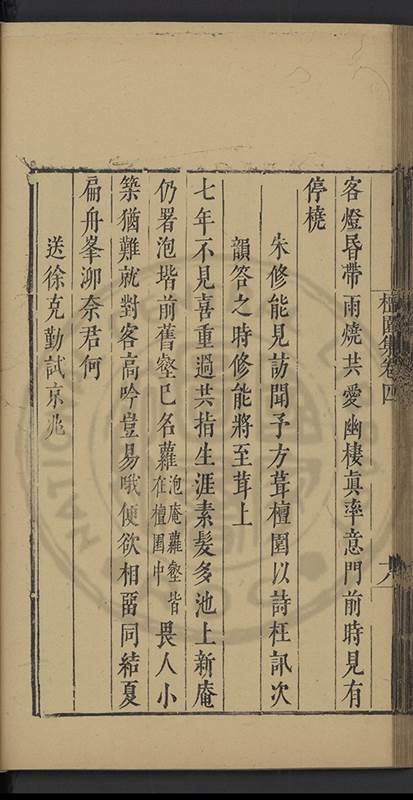 客燈昏帶雨燒共愛幽棲真率意門前時見有
停橈
朱修能見訪聞予方葺檀園以詩枉訊次
韻答之時修能將至茸上
七年不見喜重過共指生涯素髮多池上新庵
仍署泡堦前舊壑已名蘿泡庵蘿壑皆在檀園中畏人小
築猶難就對客高吟豈易哦便欲相留同結夏
扁舟峯泖奈君何
送徐克勤試京兆
檀園集卷四